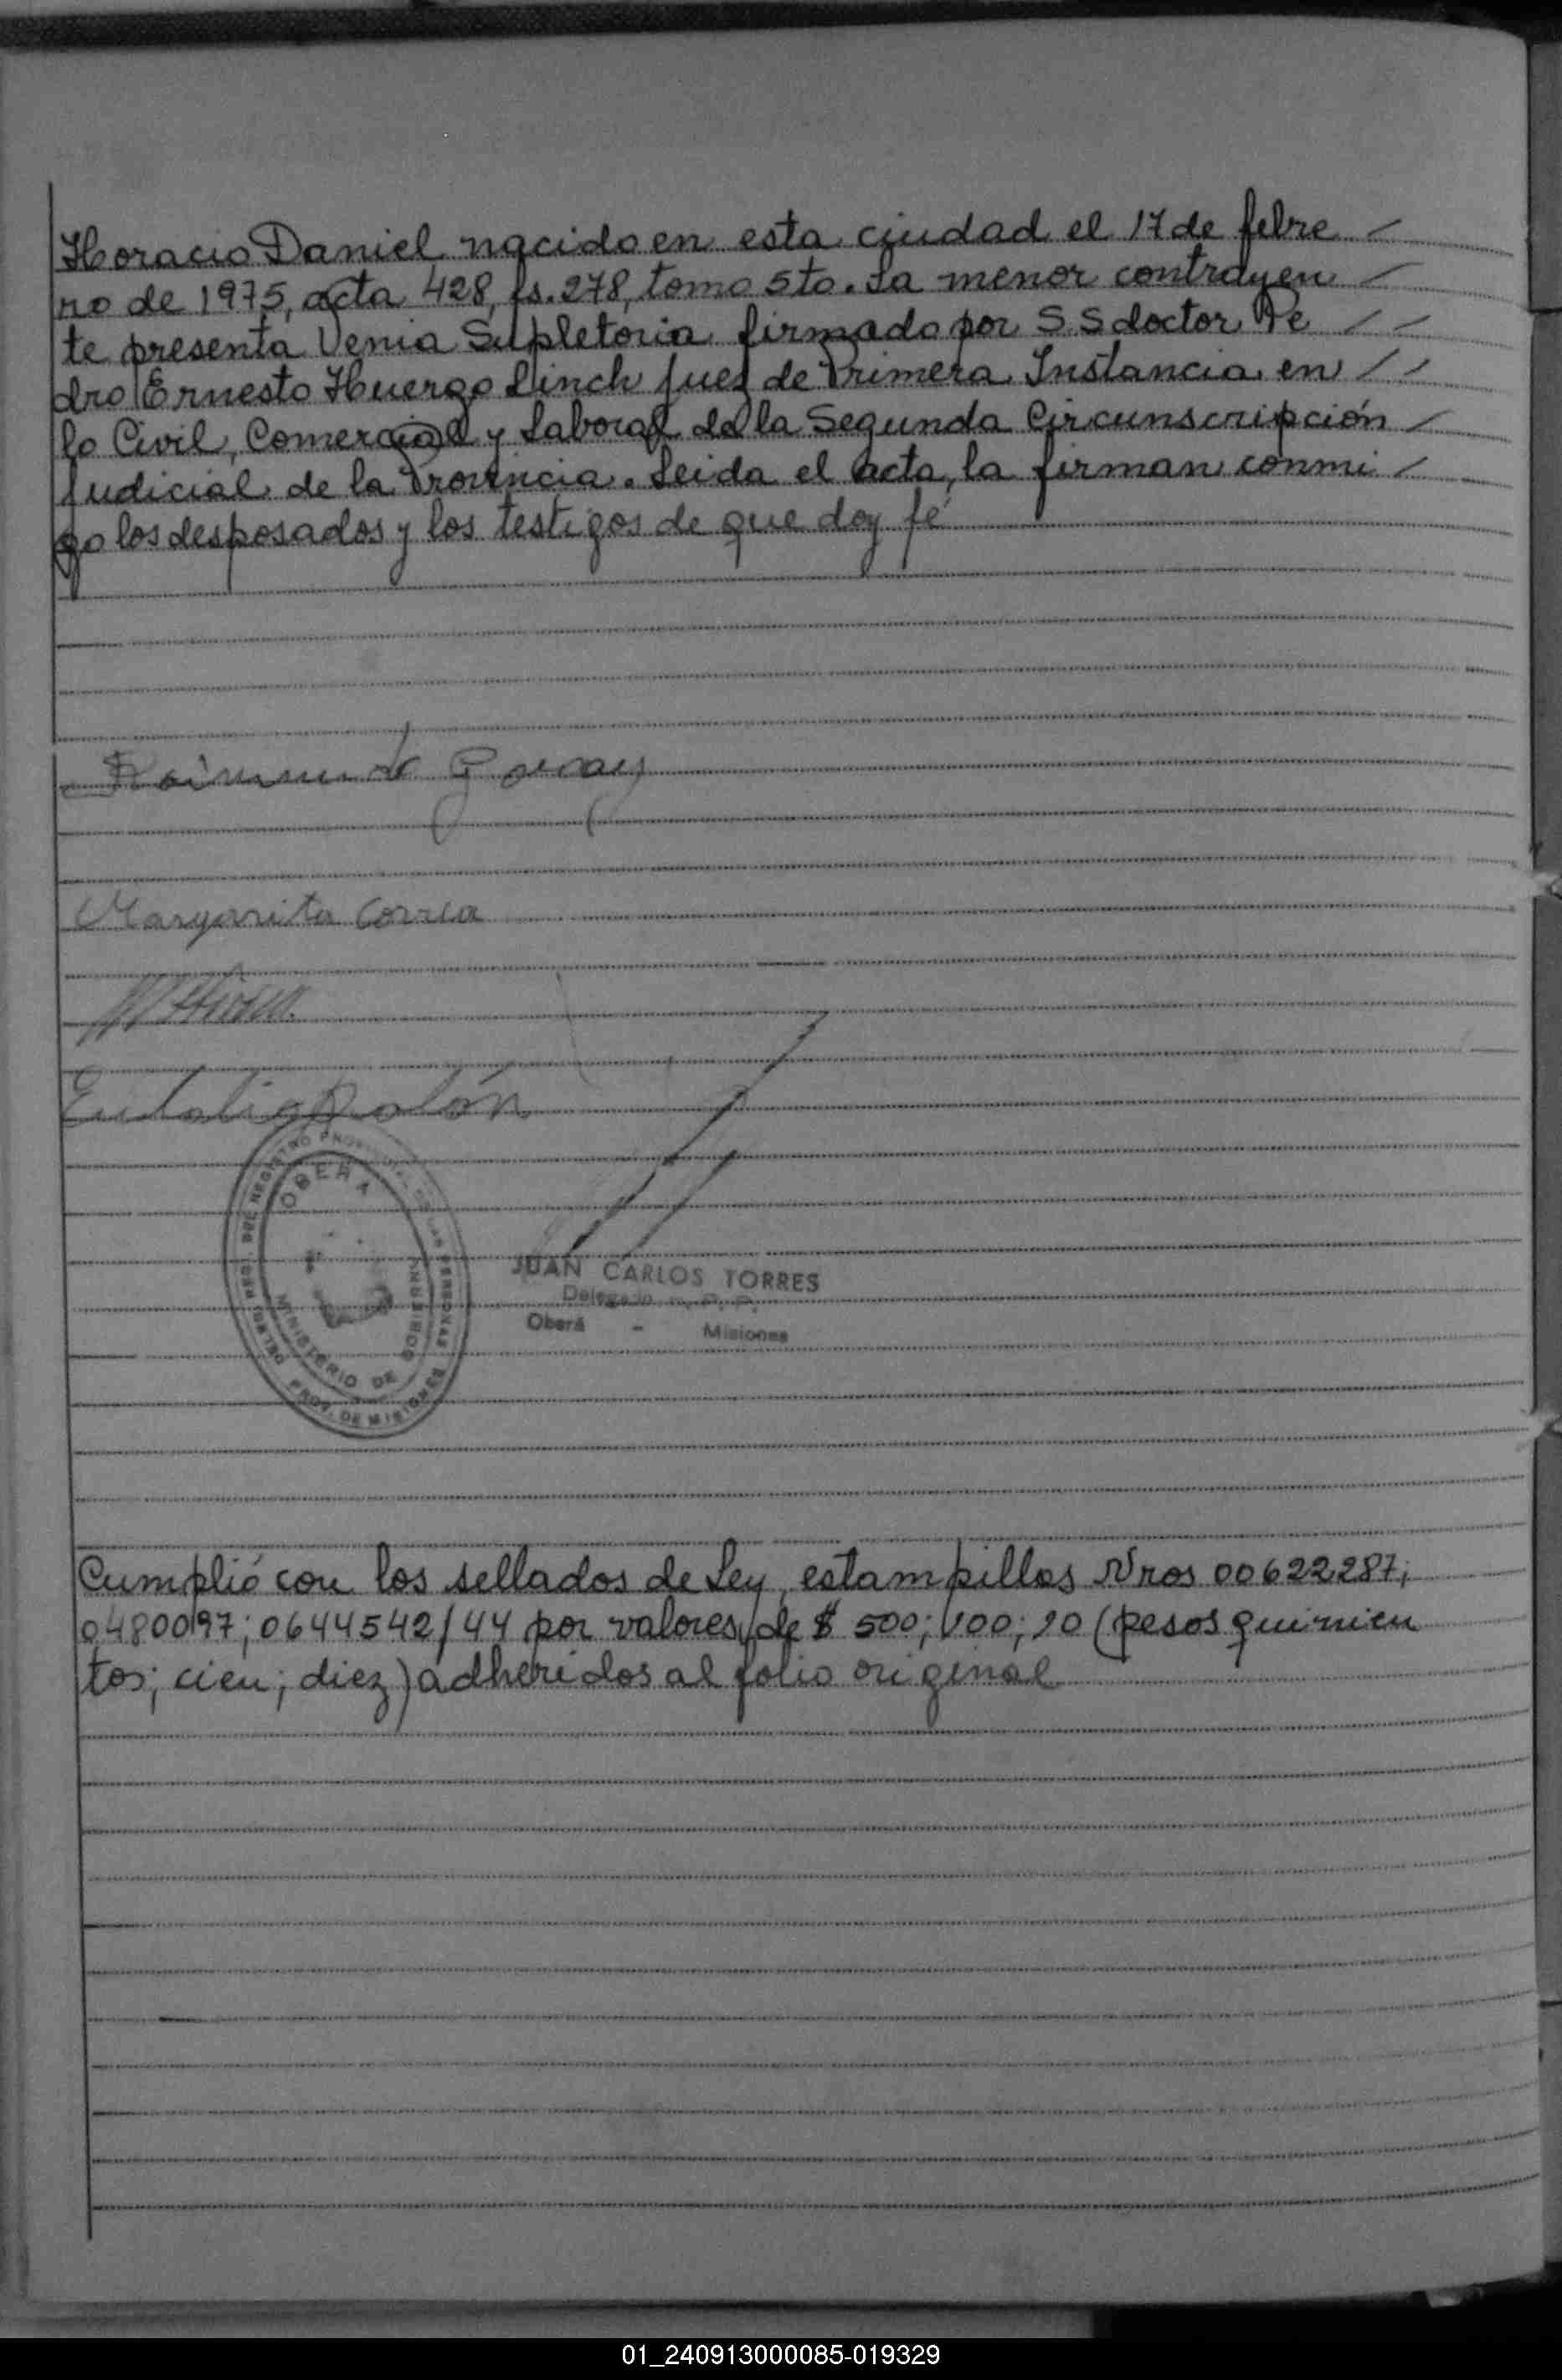 Horacio Daniel nacido en esta ciudad el 17 de febre
ro de 1975, acta 428, fs. 278, tomo 5to. La menor contrayen
te presenta Venia Supletoria firmado por S S doctor Pe
dro Ernesto Huergo Linch Juez de Primera Instancia en
lo Civil, Comercial y Laboral de la Segunda Circunscripción
Judicial de la Provincia. Leida el acta, la firman conmi
go los desposados y los testigos de que doy fé
Margarita Correa
OBERA
MINISTERIO DE GOBIERNO
PROV. DE MISIONES
JUAN CARLOS TORRES
Delegado R. P. P.
Oberá - Misiones
Cumplió con los sellados de Ley, estampillas Nros 00622287;
0480097; 0644542/44 por valores de $ 500; 100; 10 (pesos quinien
tos; cien; diez) adheridos al folio original
01_240913000085-019329